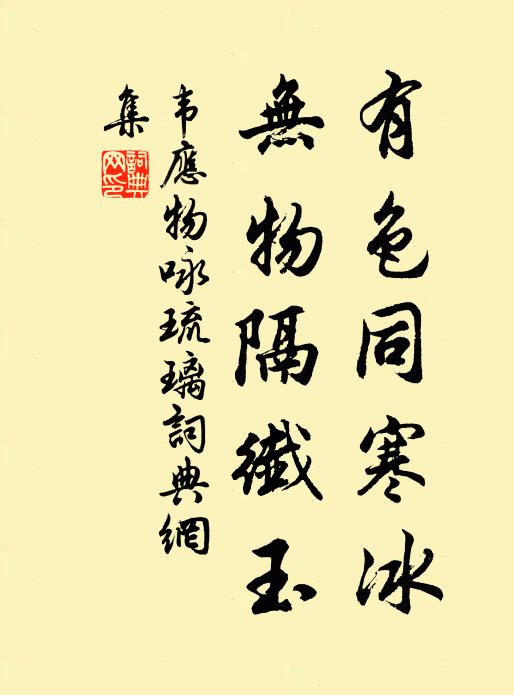 有色同寒冰
無物隔纖玉
韦應物咏琉璃詞典網
集
詞典
网印